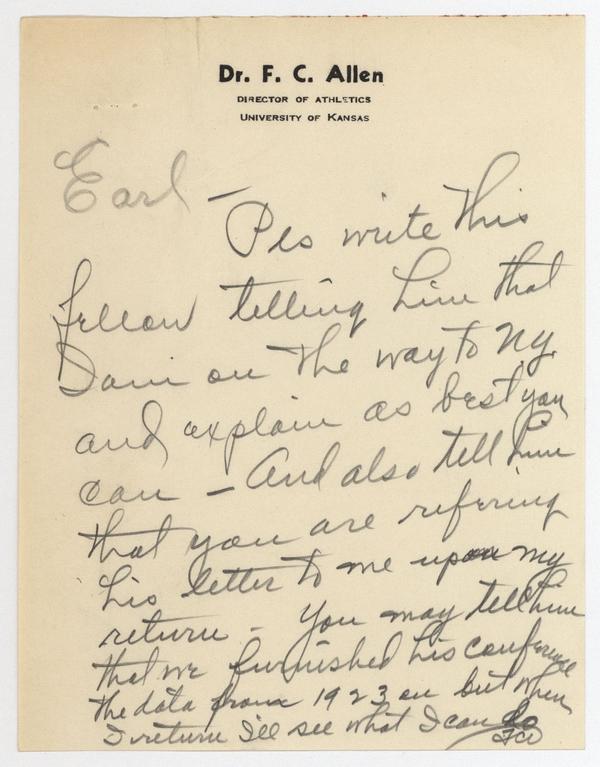 Dr. F. C. Allen
DIRECTOR OF ATHLETICS
UNIVERSITY OF KANSAS
Earl -
Pls write this
fellow telling him that
I am on the way to NY.
and explain as best you
can - And also tell him
that you are refering
his letter to me upon my
return - You may tell him
that we furnished his conference
the data from 1923 on but when
I return I'll see what I can do
FCA